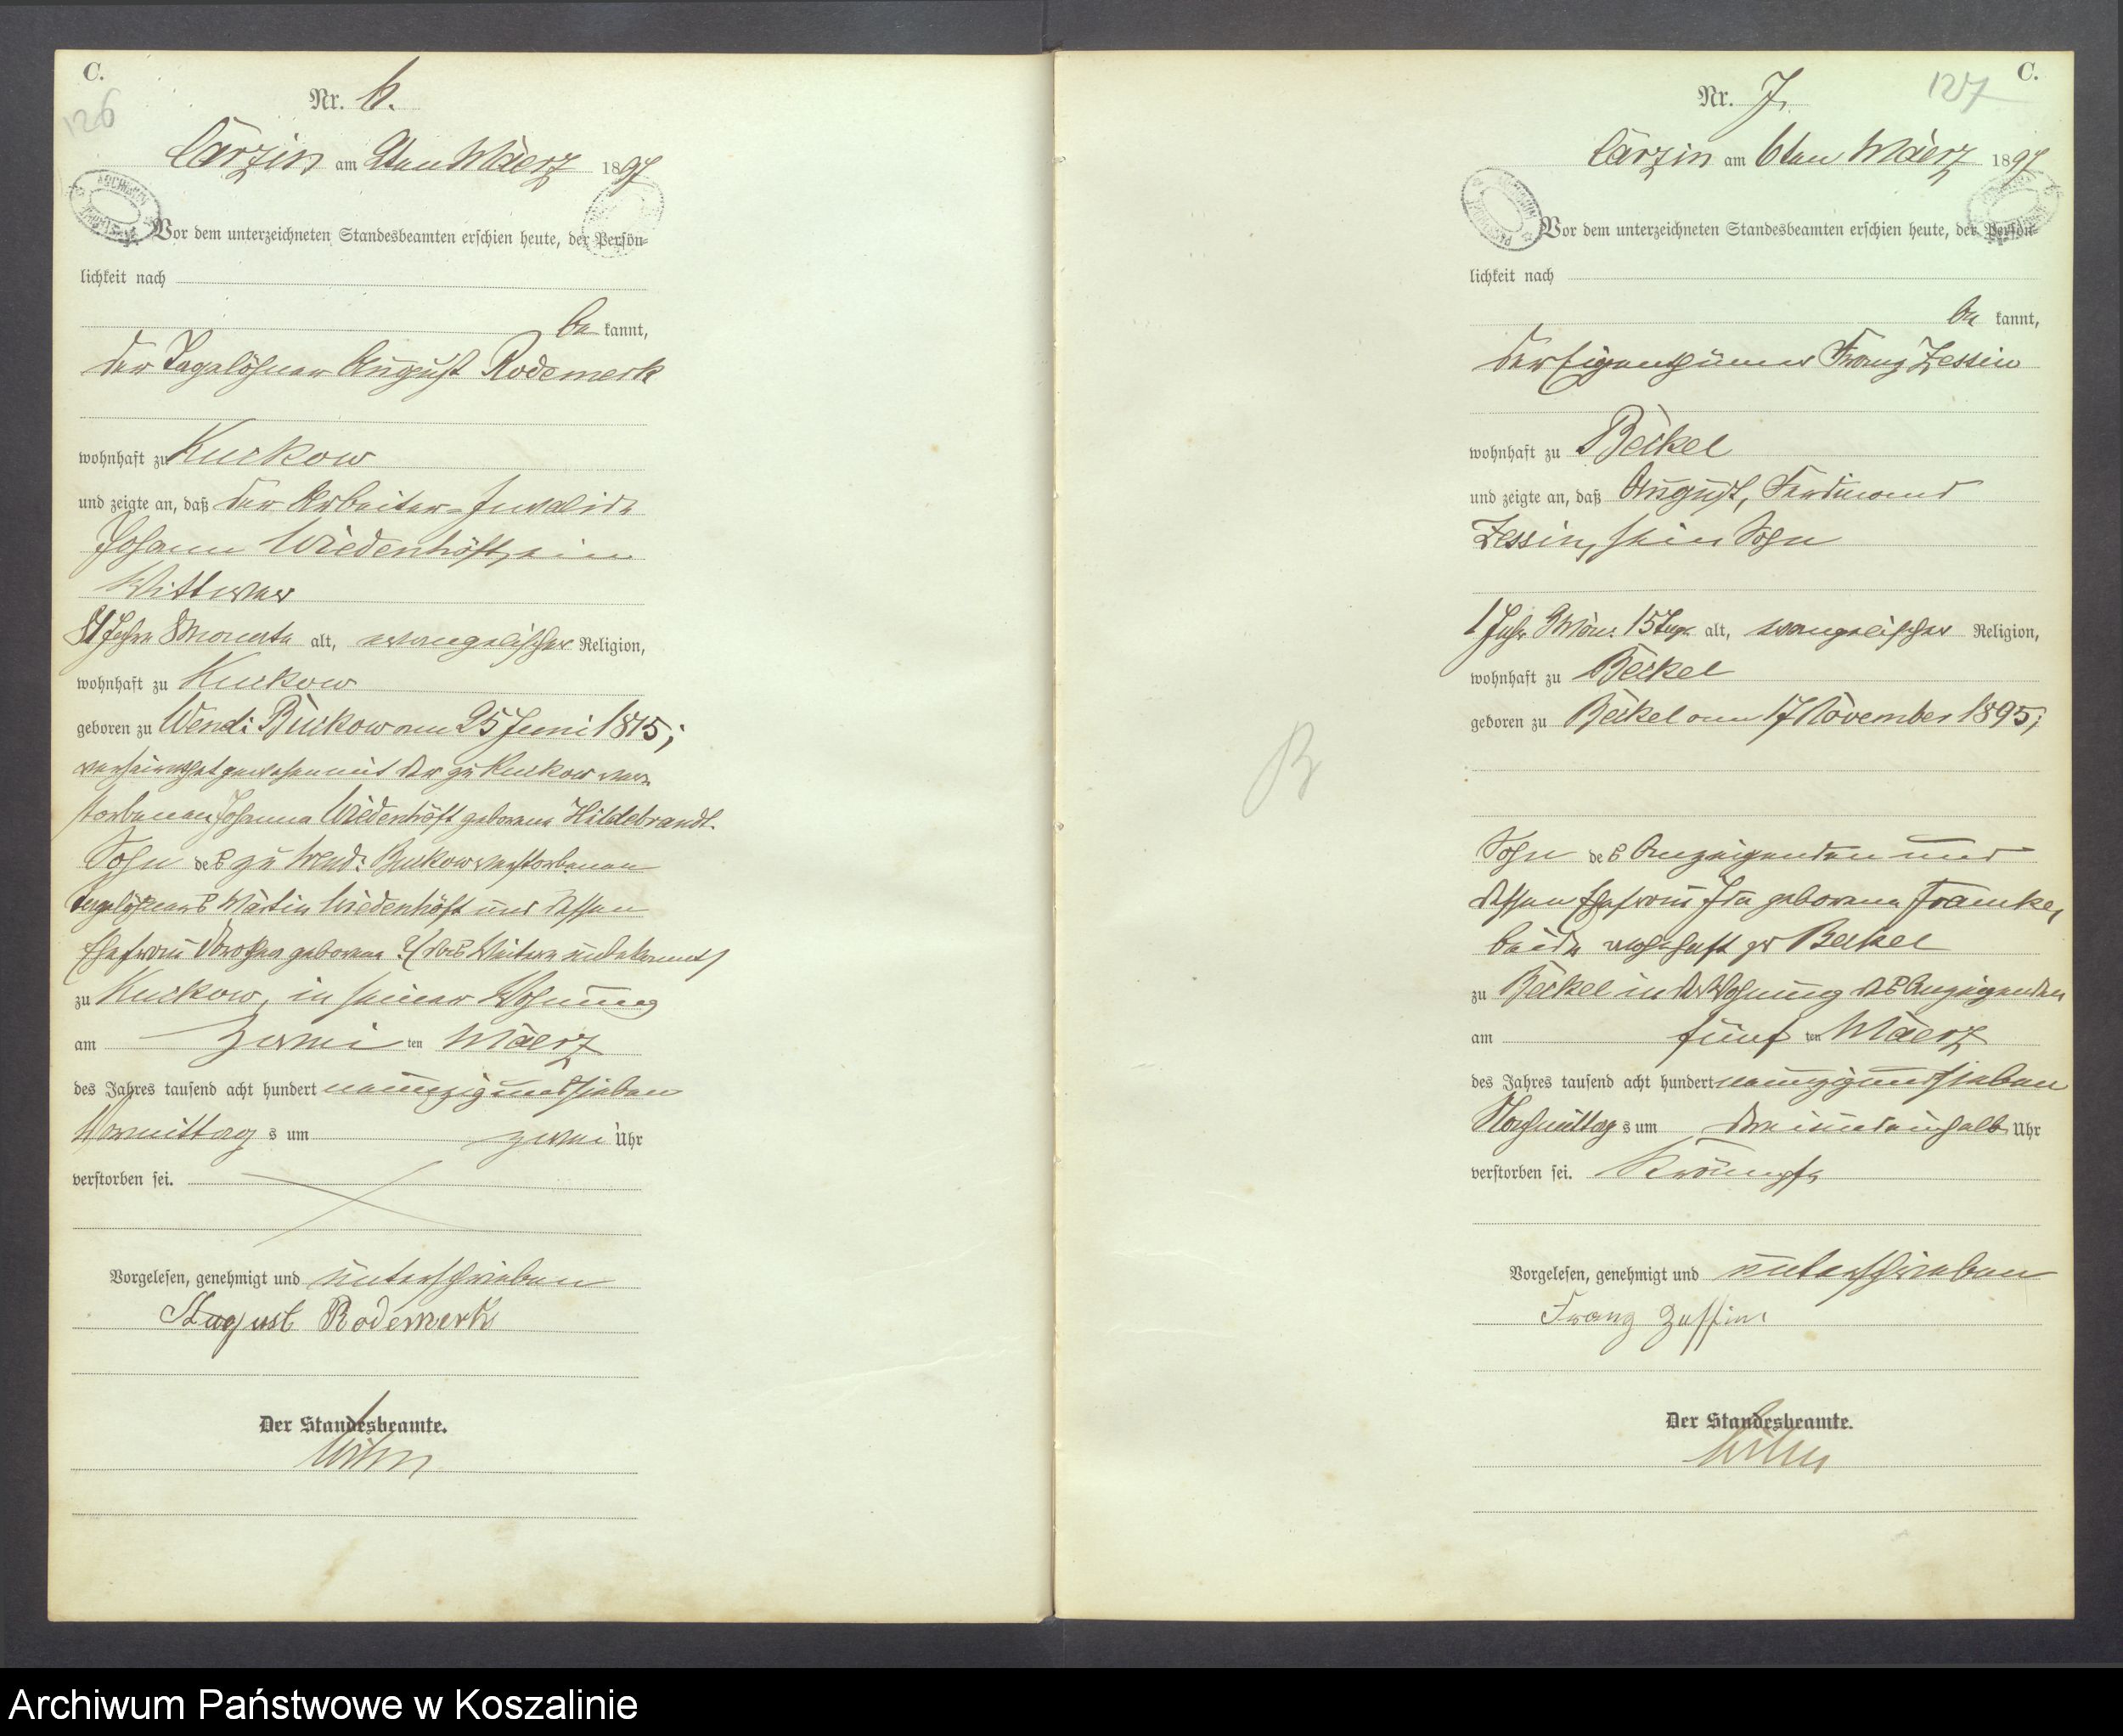 C.
126
Nr. 6.
Carzin am 2ten Maerz 1897
Vor dem unterzeichneten Standesbeamten erschien heute, der Persön-
lichkeit nach
be kannt,
der Tagelöhner August Rodemerk
wohnhaft zu Kuckow
und zeigte an, daß der Arbeiter-Invalide
Johann Wiedenhöft, ein
Wittwer
81 Jahre 8 Monate alt, evangelischer Religion,
wohnhaft zu Kuckow
geboren zu Wend: Buckow am 25 Juni 1815;
verheirathet gewesen mit der zu Kuckow ver-
storbenen Johanna Wiedenhöft geborene Hildebrandt.
Sohn des zu Wend: Buckow verstorbenen
Tagelöhners Martin Wiedenhöft und dessen
Ehefrau Dorothea geborene ? (das Weitere unbekannt)
zu Kuckow, in seiner Wohnung
am zwei ten Maerz
des Jahres tausend acht hundert neunzig und sieben
Vormittag s um zwei Uhr
verstorben sei.
Vorgelesen, genehmigt und unterschrieben
August Rodemerk
Der Standesbeamte.
C.
127
Nr. 7.
Carzin am 6ten Maerz 1897
Vor dem unterzeichneten Standesbeamten erschien heute, der Persön-
lichkeit nach
be kannt,
der Eigenthümer Franz Zessin
wohnhaft zu Beckel
und zeigte an, daß August, Ferdinand
Zessin, sein Sohn
1 Jahr 3 Mon. 15 Tage alt, evangelischer Religion,
wohnhaft zu Beckel
geboren zu Beckel am 17 November 1895;
B
Sohn des Anzeigenden und
dessen Ehefrau Ida geborene Framke,
beide wohnhaft zu Beckel
zu Beckel in der Wohnung des Anzeigenden
am fünf ten Maerz
des Jahres tausend acht hundert neunzig und sieben
Nachmittag s um drei und einhalb Uhr
verstorben sei. Krämpfe
Vorgelesen, genehmigt und unterschrieben
Franz Zessin
Der Standesbeamte.
Archiwum Państwowe w Koszalinie